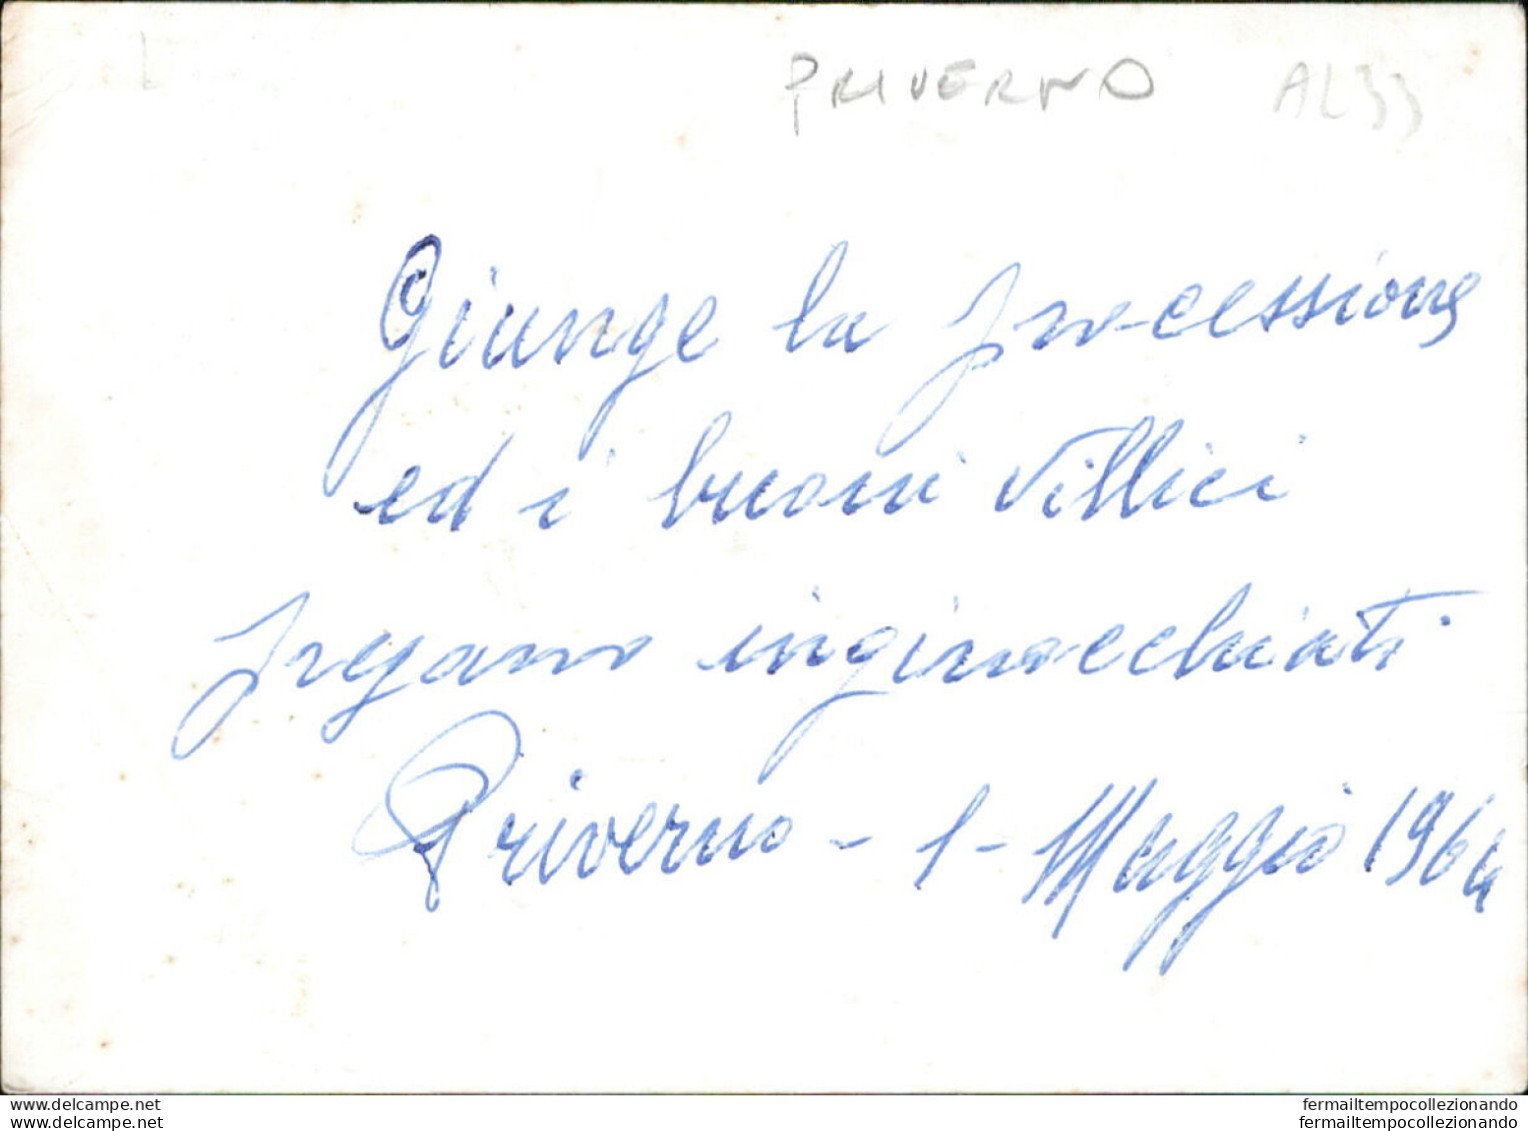 PRIVERNO AL33
Giunge la processione
ed i buoni villici
pregano inginocchiati
Priverno - 1 - Maggio 1964
www.delcampe.net
www.delcampe.net
fermailtempocollezionando
fermailtempocollezionando